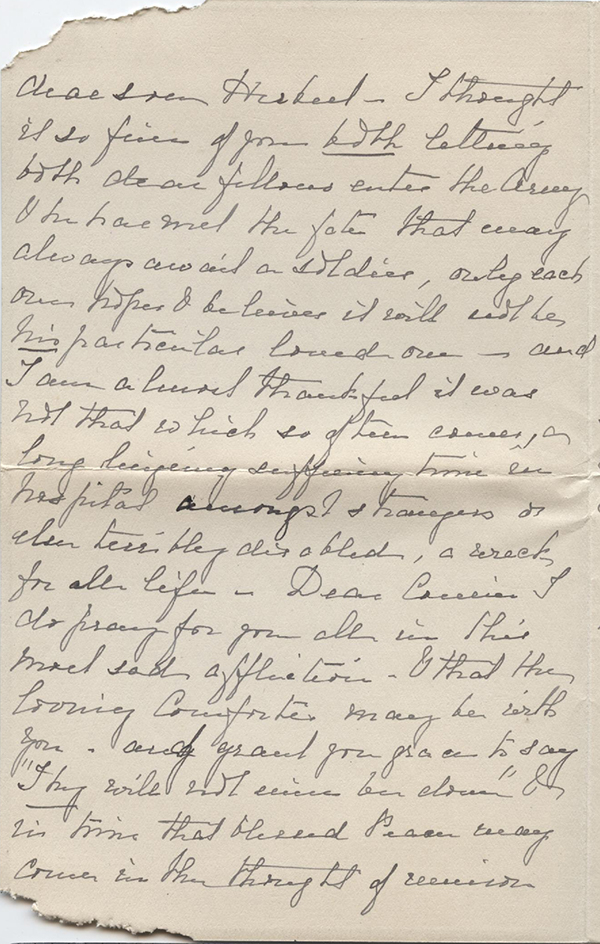 dear son Herbert - I thought
it so fine of you both letting
both dear fellows enter the Army
& he has met the fate that may
always await a soldier, only each
one hopes & believes it will not be
his particular loved one - and
I am almost thankful it was
not that which so often comes, a
long lingering suffering time in
hospital amongst strangers or
else terribly disabled, a wreck
for all life - Dear Cousin I
do pray for you all in this
most sad affliction - & that the
loving Comforter may be with
you - and grant you grace to say
"Thy will not mine be done" &
in time that blessed Peace may
come in the thought of reunion